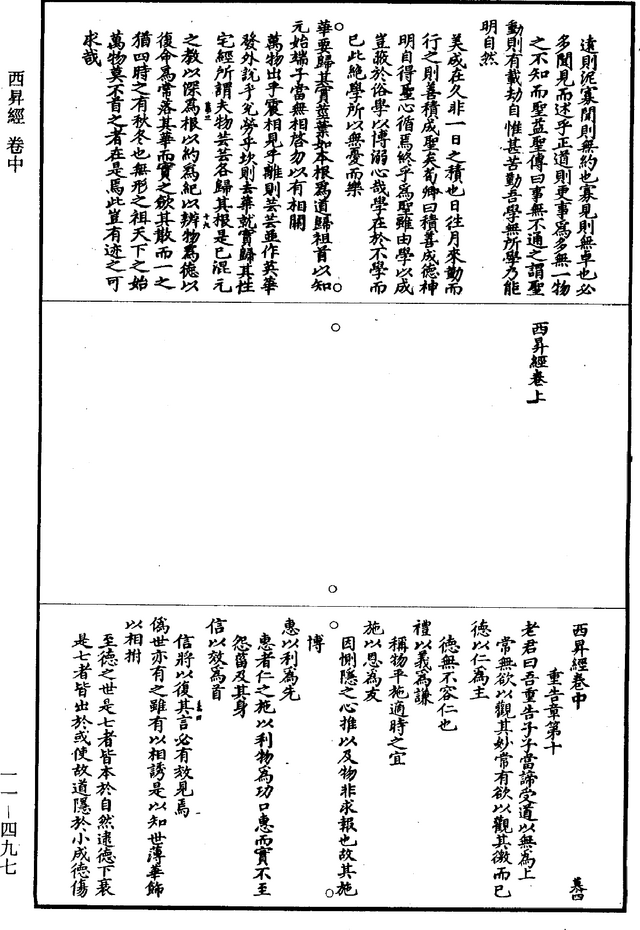 遠則泥寡聞則無約也寡見則無卓也必
多聞見而述乎正道則更事為多無一物
之不知而聖益聖傳曰事無不通之謂聖
動則有載劫自惟甚苦勤吾學無所學乃能
明自然
美成在久非一日之積也日往月來勤而
行之則善積成聖矣荀卿曰積善成德神
明自得聖心循焉終乎為聖雖由學以成
豈蔽於俗學以博溺心哉學在於不學而
已此絕學所以無憂而樂
華要歸其實莖葉如本根為道歸祖首以知
元始端子當無相啓勿以有相關
萬物出乎震相見乎離則芸芸並作英華
發外說乎兌勞乎坎則去華就實歸其性
宅經所謂夫物芸芸各歸其根是已混元
之教以深為根以約為紀以辨物為德以
復命為常落其華而實之歛其散而一之
猶四時之有秋冬也無形之祖天下之始
萬物莫不首之者在是焉此豈有迹之可
求哉
西昇經卷上
西昇經卷中
慕四
重告章第十
老君曰吾重告子子當諦受道以無為上
常無欲以觀其妙常有欲以觀其徼而已
德以仁為主
德無不容仁也
禮以義為謙
稱物平施適時之宜
施以恩為友
因惻隱之心推以及物非求報也故其施
博
惠以利為先
惠者仁之施以利物為功口惠而實不至
怨菑及其身
信以效為首
信將以復其言必有效見焉
偽世亦有之雖有以相誘是以知世薄華飾
以相拊
至德之世是七者皆本於自然逮德下衰
是七者皆出於或使故道隱於小成德傷
西昇經 卷中
一一－四九七